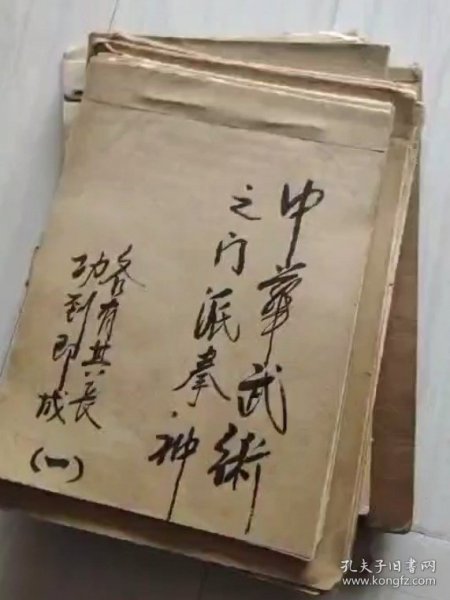 中華武術
之门派拳·神
各有其長
功到即成
(一)
孔夫子旧书网
www.kongfz.com